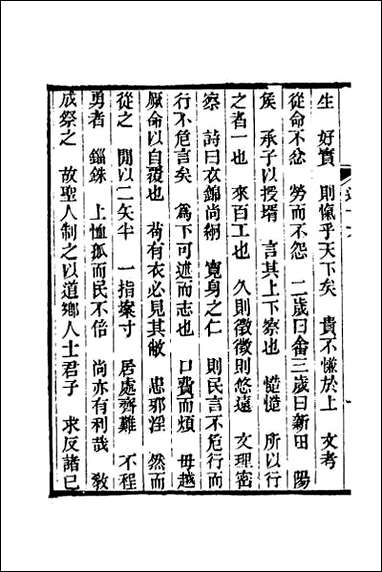 生　好實　則愾乎天下矣　貴不慊於上　文考
從命不忿　勞而不怨　二歲曰畬三歲曰新田　陽
侯　承子以授壻　言其上下察也　慥慥　所以行
之者一也　來百工也　久則徵徵則悠遠　文理密
察　詩曰衣錦尚絅　寬身之仁　則民言不危行而
行不危言矣　爲下可述而志也　口費而煩　毋越
厥命以自覆也　苟有衣必見其敝　忠邪淫　然而
從之　閒以二矢半　一指案寸　居處齊難　不程
勇者　錙銖　上恤孤而民不倍　尚亦有利哉　敎
成祭之　故聖人制之以道鄉人士君子　求反諸己